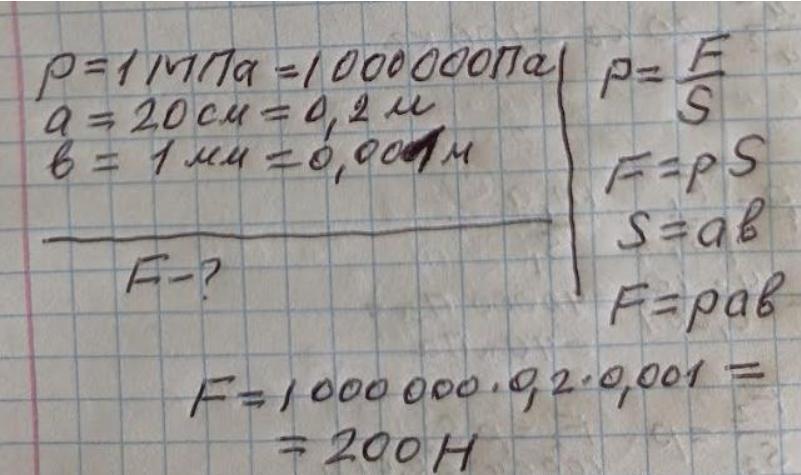 p = 1 МПа = 1000000Па
a = 20 см = 0,2 м
в = 1 мм = 0,001м
F - ?
p = F/S
F = pS
S = aв
F = paв
F = 1 000 000 · 0,2 · 0,001 =
= 200 Н